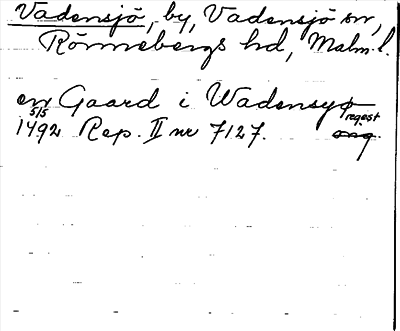 Vadensjö, by, Vadensjö sn,
Rönnebergs hd, Malm. l.
en Gaard i Wadensyø
5/5 regest
1492 Rep. II nr 7127. orig.